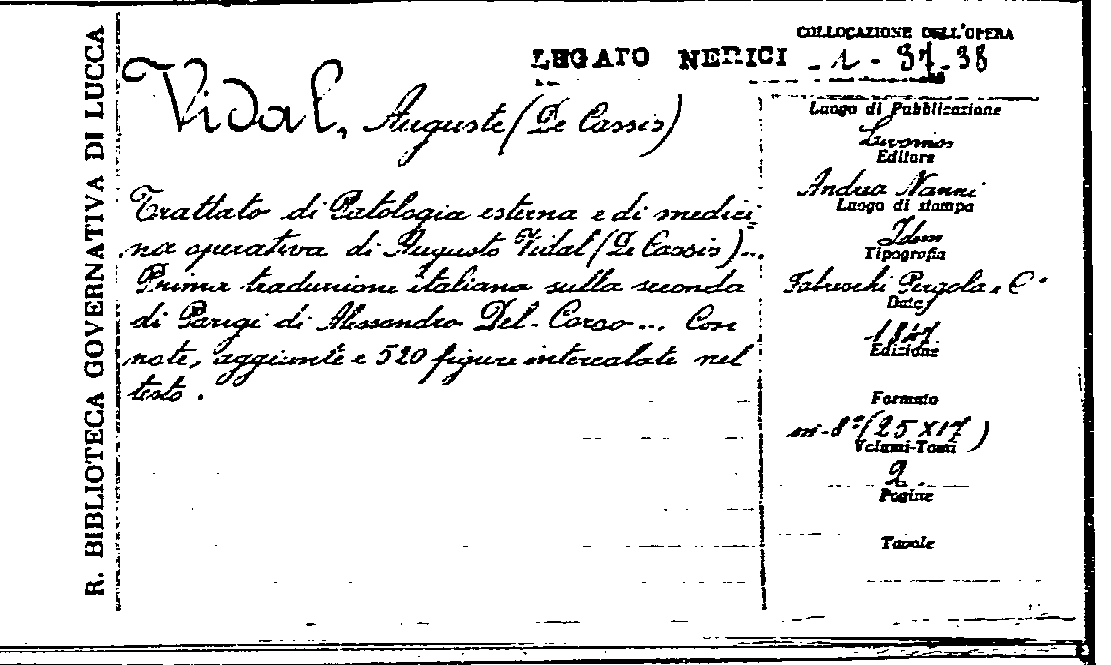 R. BIBLIOTECA GOVERNATIVA DI LUCCA
COLLOCAZIONE DELL'OPERA
LEGATO NERICI - 1 - 37-38
Vidal, Auguste (De Cassis)
Trattato di Patologia esterna e di medici-
na operativa di Augusto Vidal (De Cassis)...
Prima traduzione italiana sulla seconda
di Parigi di Alessandro Del-Corso... Con
note, aggiunte e 520 figure intercalate nel
testo.
Luogo di Pubblicazione
Livorno
Editore
Andrea Nanni
Luogo di stampa
Idem
Tipografia
Fabreschi Pergola e C°
Data
1847
Edizione
Formato
in-8°(25X17)
Volumi-Tomi
2.
Pagine
Tavole